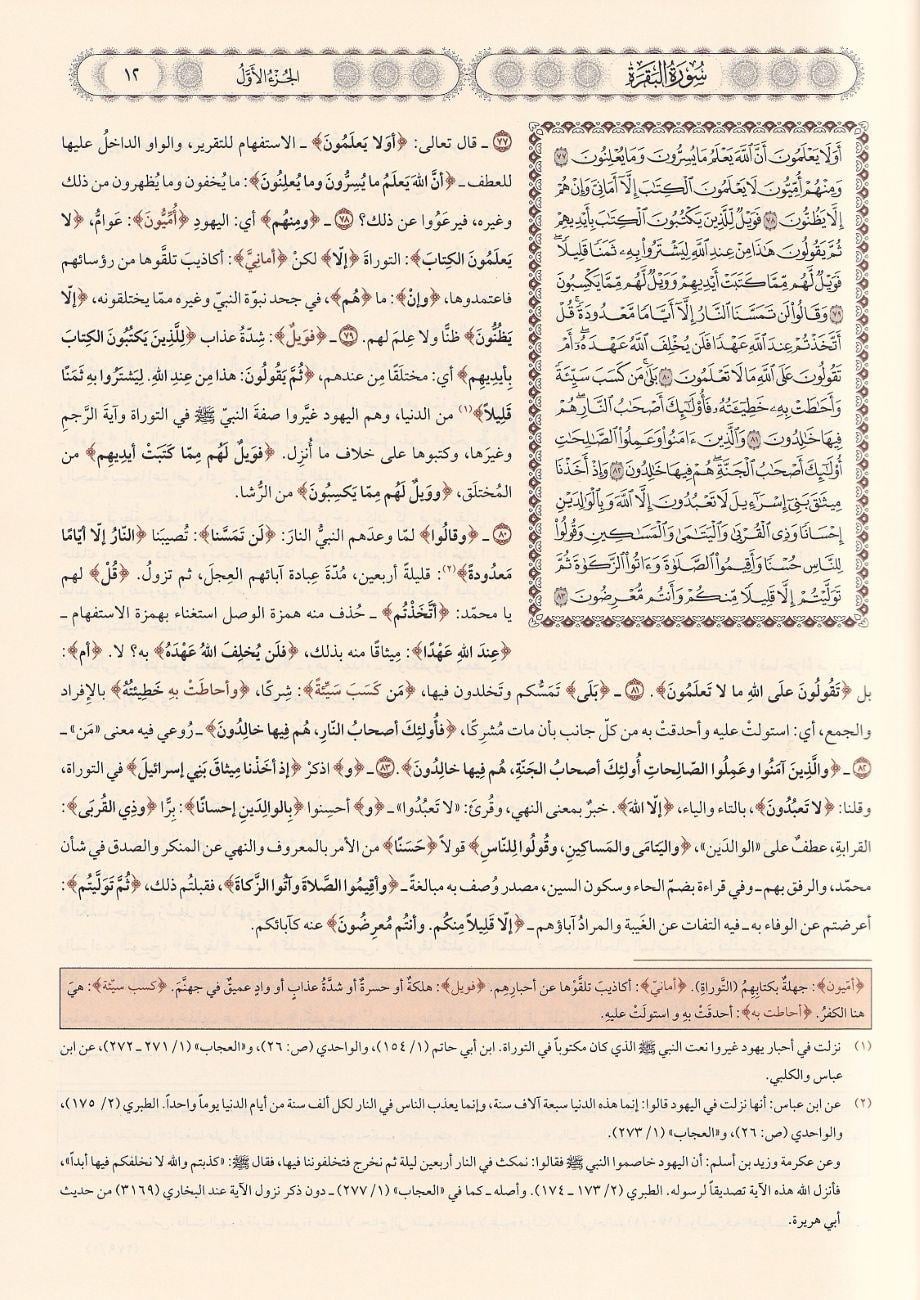 سُورَةُ البَقَرَةِ
الجُزْءُ الأَوَّلُ
١٢
أَوَلَا يَعْلَمُونَ أَنَّ ٱللَّهَ يَعْلَمُ مَا يُسِرُّونَ وَمَا يُعْلِنُونَ ٧٧
وَمِنْهُمْ أُمِّيُّونَ لَا يَعْلَمُونَ ٱلْكِتَٰبَ إِلَّآ أَمَانِيَّ وَإِنْ هُمْ
إِلَّا يَظُنُّونَ ٧٨ فَوَيْلٌ لِّلَّذِينَ يَكْتُبُونَ ٱلْكِتَٰبَ بِأَيْدِيهِمْ
ثُمَّ يَقُولُونَ هَٰذَا مِنْ عِندِ ٱللَّهِ لِيَشْتَرُوا۟ بِهِۦ ثَمَنًا قَلِيلًا ۖ
فَوَيْلٌ لَّهُم مِّمَّا كَتَبَتْ أَيْدِيهِمْ وَوَيْلٌ لَّهُم مِّمَّا يَكْسِبُونَ
٧٩ وَقَالُوا۟ لَن تَمَسَّنَا ٱلنَّارُ إِلَّآ أَيَّامًا مَّعْدُودَةً ۚ قُلْ
أَتَّخَذْتُمْ عِندَ ٱللَّهِ عَهْدًا فَلَن يُخْلِفَ ٱللَّهُ عَهْدَهُۥٓ ۖ أَمْ
تَقُولُونَ عَلَى ٱللَّهِ مَا لَا تَعْلَمُونَ ٨٠ بَلَىٰ ۚ مَن كَسَبَ سَيِّئَةً
وَأَحَٰطَتْ بِهِۦ خَطِيٓـَٔتُهُۥ فَأُو۟لَٰٓئِكَ أَصْحَٰبُ ٱلنَّارِ ۖ هُمْ
فِيهَا خَٰلِدُونَ ٨١ وَٱلَّذِينَ ءَامَنُوا۟ وَعَمِلُوا۟ ٱلصَّٰلِحَٰتِ
أُو۟لَٰٓئِكَ أَصْحَٰبُ ٱلْجَنَّةِ ۖ هُمْ فِيهَا خَٰلِدُونَ ٨٢ وَإِذْ أَخَذْنَا
مِيثَٰقَ بَنِىٓ إِسْرَٰٓءِيلَ لَا تَعْبُدُونَ إِلَّا ٱللَّهَ وَبِٱلْوَٰلِدَيْنِ
إِحْسَانًا وَذِى ٱلْقُرْبَىٰ وَٱلْيَتَٰمَىٰ وَٱلْمَسَٰكِينِ وَقُولُوا۟
لِلنَّاسِ حُسْنًا وَأَقِيمُوا۟ ٱلصَّلَوٰةَ وَءَاتُوا۟ ٱلزَّكَوٰةَ ثُمَّ
تَوَلَّيْتُمْ إِلَّا قَلِيلًا مِّنكُمْ وَأَنتُم مُّعْرِضُونَ ٨٣
٧٧ ـ قال تعالى: ﴿أَوَلا يَعلَمُونَ﴾ ـ الاستفهام للتقرير، والواو الداخلُ عليها
للعطف ـ ﴿أنَّ اللهَ يَعلَمُ ما يُسِرُّونَ وما يُعلِنُونَ﴾: ما يُخفون وما يُظهرون من ذلك
وغيره، فيرعَوُا عن ذلك؟ ٧٨ ـ ﴿ومِنهُم﴾ أي: اليهودِ ﴿أُمِّيُّونَ﴾: عَوامُّ، ﴿لا
يَعلَمُونَ الكِتابَ﴾: التوراةَ ﴿إلّا﴾ لكنْ ﴿أمانِيَّ﴾: أكاذيبَ تلقَّوها من رؤسائهم
فاعتمدوها، ﴿وإنْ﴾: ما ﴿هُم﴾، في جحد نبوّة النبيّ وغيره ممّا يختلقونه، ﴿إلّا
يَظُنُّونَ﴾ ظنًّا ولا عِلمَ لهم. ٧٩ ـ ﴿فوَيلٌ﴾: شِدّةُ عذاب ﴿لِلَّذِينَ يَكتُبُونَ الكِتابَ
بِأيدِيهِم﴾ أي: مختلَقًا مِن عندهم، ﴿ثُمَّ يَقُولُونَ: هذا مِن عِندِ اللهِ. لِيَشتَرُوا بِهِ ثَمَنًا
قَلِيلاً﴾(١) من الدنيا، وهم اليهود غيَّروا صفةَ النبيّ ﷺ في التوراة وآيةَ الرَّجمِ
وغيرَها، وكتبوها على خلاف ما أُنزل. ﴿فوَيلٌ لَهُم مِمّا كَتَبَتْ أيدِيهِم﴾ من
المُختلَق، ﴿ووَيلٌ لَهُم مِمّا يَكسِبُونَ﴾ من الرُّشا.
٨٠ ـ ﴿وقالُوا﴾ لمّا وعدَهم النبيُّ النارَ: ﴿لَن تَمَسَّنا﴾: تُصيبَنا ﴿النّارُ إلّا أيّامًا
مَعدُودةً﴾(٢): قليلةً أربعين، مُدّةَ عِبادة آبائهم العِجلَ، ثم تزولُ. ﴿قُلْ﴾ لهم
يا محمّد: ﴿أتَّخَذْتُم﴾ ـ حُذف منه همزة الوصل استغناء بهمزة الاستفهام ـ
﴿عِندَ اللهِ عَهْدًا﴾: مِيثاقًا منه بذلك، ﴿فلَن يُخلِفَ اللهُ عَهْدَهُ﴾ به؟ لا. ﴿أم﴾:
بل ﴿تَقُولُونَ علَى اللهِ ما لا تَعلَمُونَ﴾. ٨١ ـ ﴿بَلَى﴾ تَمَسُّكم وتَخلدون فيها، ﴿مَن كَسَبَ سَيِّئةً﴾: شِركًا، ﴿وأحاطَتْ بِهِ خَطِيئتُهُ﴾ بالإفراد
والجمع، أي: استولتْ عليه وأحدقتْ به من كلّ جانب بأن مات مُشرِكًا، ﴿فأُولئِكَ أصحابُ النّارِ، هُم فِيها خالِدُونَ﴾ ـ رُوعي فيه معنى «مَن» ـ
٨٢ ـ ﴿والَّذِينَ آمَنُوا وعَمِلُوا الصّالِحاتِ أُولئِكَ أصحابُ الجَنّةِ، هُم فِيها خالِدُونَ﴾. ٨٣ ـ ﴿و﴾ اذكرْ ﴿إذ أخَذْنا مِيثاقَ بَنِي إسرائيلَ﴾ في التوراة،
وقلنا: ﴿لا تَعبُدُونَ﴾، بالتاء والياء، ﴿إلّا اللهَ﴾. خبرٌ بمعنى النهي، وقُرئَ: «لا تَعبُدُوا» ـ ﴿و﴾ أحسِنوا ﴿بِالوالِدَينِ إحسانًا﴾: بِرًّا ﴿وذِي القُربَى﴾:
القرابةِ، عطفٌ على «الوالدَين»، ﴿واليَتامَى والمَساكِينِ، وقُولُوا لِلنّاسِ﴾ قولاً ﴿حَسَنًا﴾ من الأمر بالمعروف والنهي عن المنكر والصدق في شأن
محمّد، والرفق بهم ـ وفي قراءة بضمّ الحاء وسكون السين، مصدر وُصف به مبالغةً ـ ﴿وأقِيمُوا الصَّلاةَ وآتُوا الزَّكاةَ﴾، فقبلتُم ذلك، ﴿ثُمَّ تَوَلَّيتُم﴾:
أعرضتم عن الوفاء به ـ فيه التفات عن الغَيبة والمرادُ آباؤهم ـ ﴿إلّا قَلِيلاً مِنكُم. وأنتُم مُعرِضُونَ﴾ عنه كآبائكم.
﴿أمّيون﴾: جهلةٌ بكتابِهِمُ (التَّوراةِ). ﴿أمانيّ﴾: أكاذيبَ تلقَّوْها عن أحبارِهِم. ﴿فويل﴾: هلكةٌ أو حسرةٌ أو شدَّةُ عذابٍ أو وادٍ عميقٌ في جهنَّمَ. ﴿كسب سيّئة﴾: هيَ
هنا الكفرُ. ﴿أحاطت به﴾: أحدقَتْ بِهِ و استولَتْ عليهِ.
(١) نزلت في أحبار يهود غيروا نعت النبي ﷺ الذي كان مكتوباً في التوراة. ابن أبي حاتم (١/ ١٥٤)، والواحدي (ص: ٢٦)، و«العجاب» (١/ ٢٧١ ـ ٢٧٢)، عن ابن
عباس والكلبي.
(٢) عن ابن عباس: أنها نزلت في اليهود قالوا: إنما هذه الدنيا سبعة آلاف سنة، وإنما يعذب الناس في النار لكل ألف سنة من أيام الدنيا يوماً واحداً. الطبري (٢/ ١٧٥)،
والواحدي (ص: ٢٦)، و«العجاب» (١/ ٢٧٣).
وعن عكرمة وزيد بن أسلم: أن اليهود خاصموا النبي ﷺ فقالوا: نمكث في النار أربعين ليلة ثم نخرج فتخلفوننا فيها، فقال ﷺ: «كذبتم والله لا نخلفكم فيها أبداً»،
فأنزل الله هذه الآية تصديقاً لرسوله. الطبري (٢/ ١٧٣ ـ ١٧٤). وأصله ـ كما في «العجاب» (١/ ٢٧٧) ـ دون ذكر نزول الآية عند البخاري (٣١٦٩) من حديث
أبي هريرة.